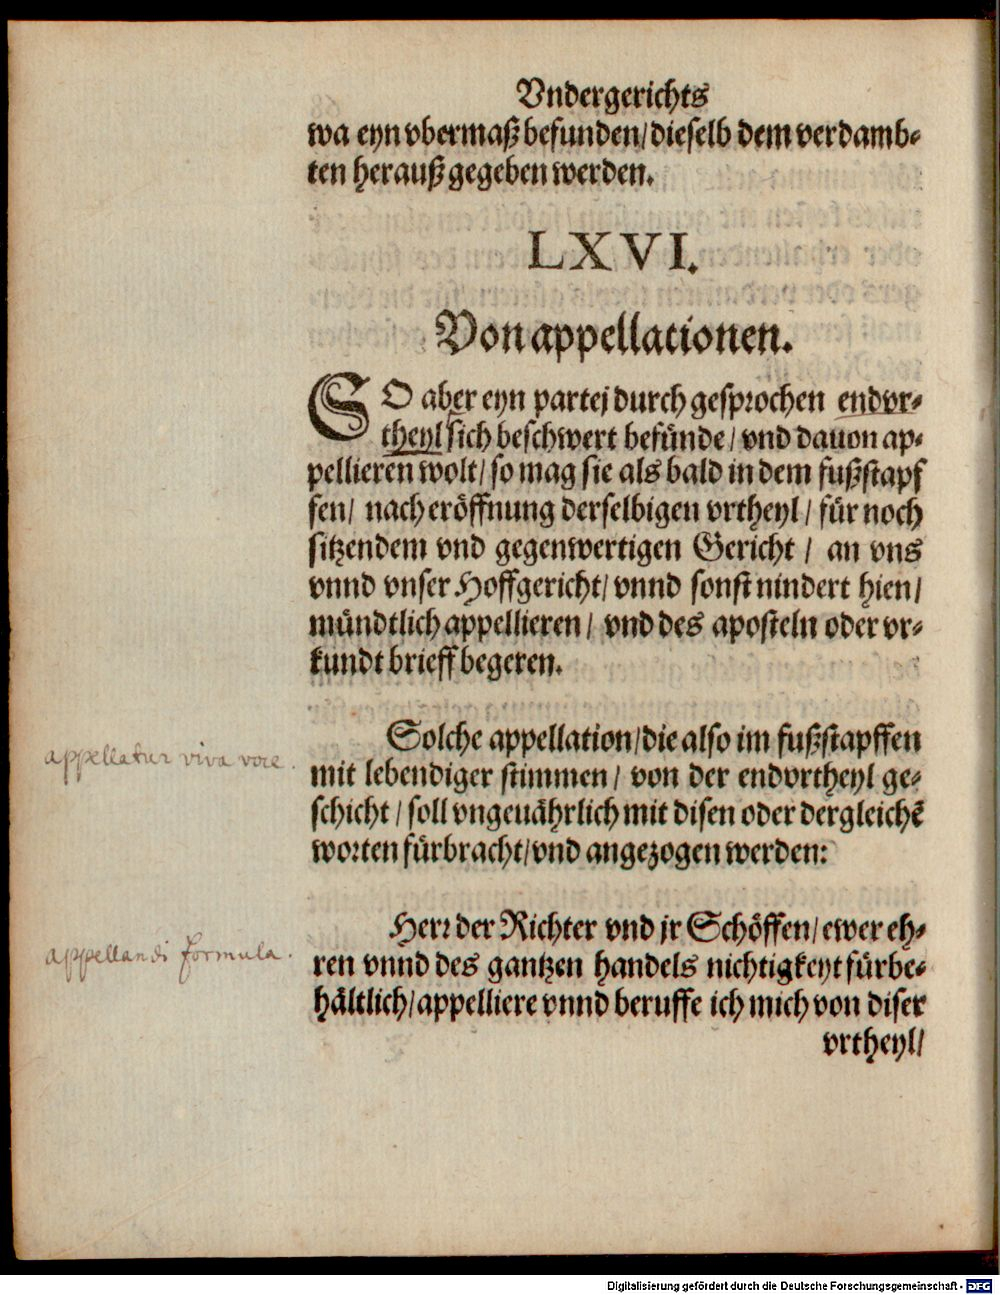 Vndergerichts
wa eyn vbermaß befunden/ dieselb dem verdamb-
ten herauß gegeben werden.
LXVI.
Von appellationen.
SO aber eyn partej durch gesprochen endvr-
theyl sich beschwert befünde/ vnd dauon ap-
pellieren wolt/ so mag sie als bald in dem fußstapf
fen/ nach eröffnung derselbigen vrtheyl/ für noch
sitzendem vnd gegenwertigen Gericht/ an vns
vnnd vnser Hoffgericht/ vnnd sonst nindert hien/
mündtlich appellieren/ vnd des aposteln oder vr-
kundt brieff begeren.
Solche appellation/ die also im fußstapffen
appellatur viva voce.
mit lebendiger stimmen/ von der endvrtheyl ge-
schicht/ soll vngeuährlich mit disen oder dergleichẽ
worten fürbracht/ vnd angezogen werden:
Herr der Richter vnd jr Schöffen/ ewer eh-
appellandi formula.
ren vnnd des gantzen handels nichtigkeyt fürbe-
hältlich/ appelliere vnnd beruffe ich mich von diser
vrtheyl/
Digitalisierung gefördert durch die Deutsche Forschungsgemeinschaft - DFG